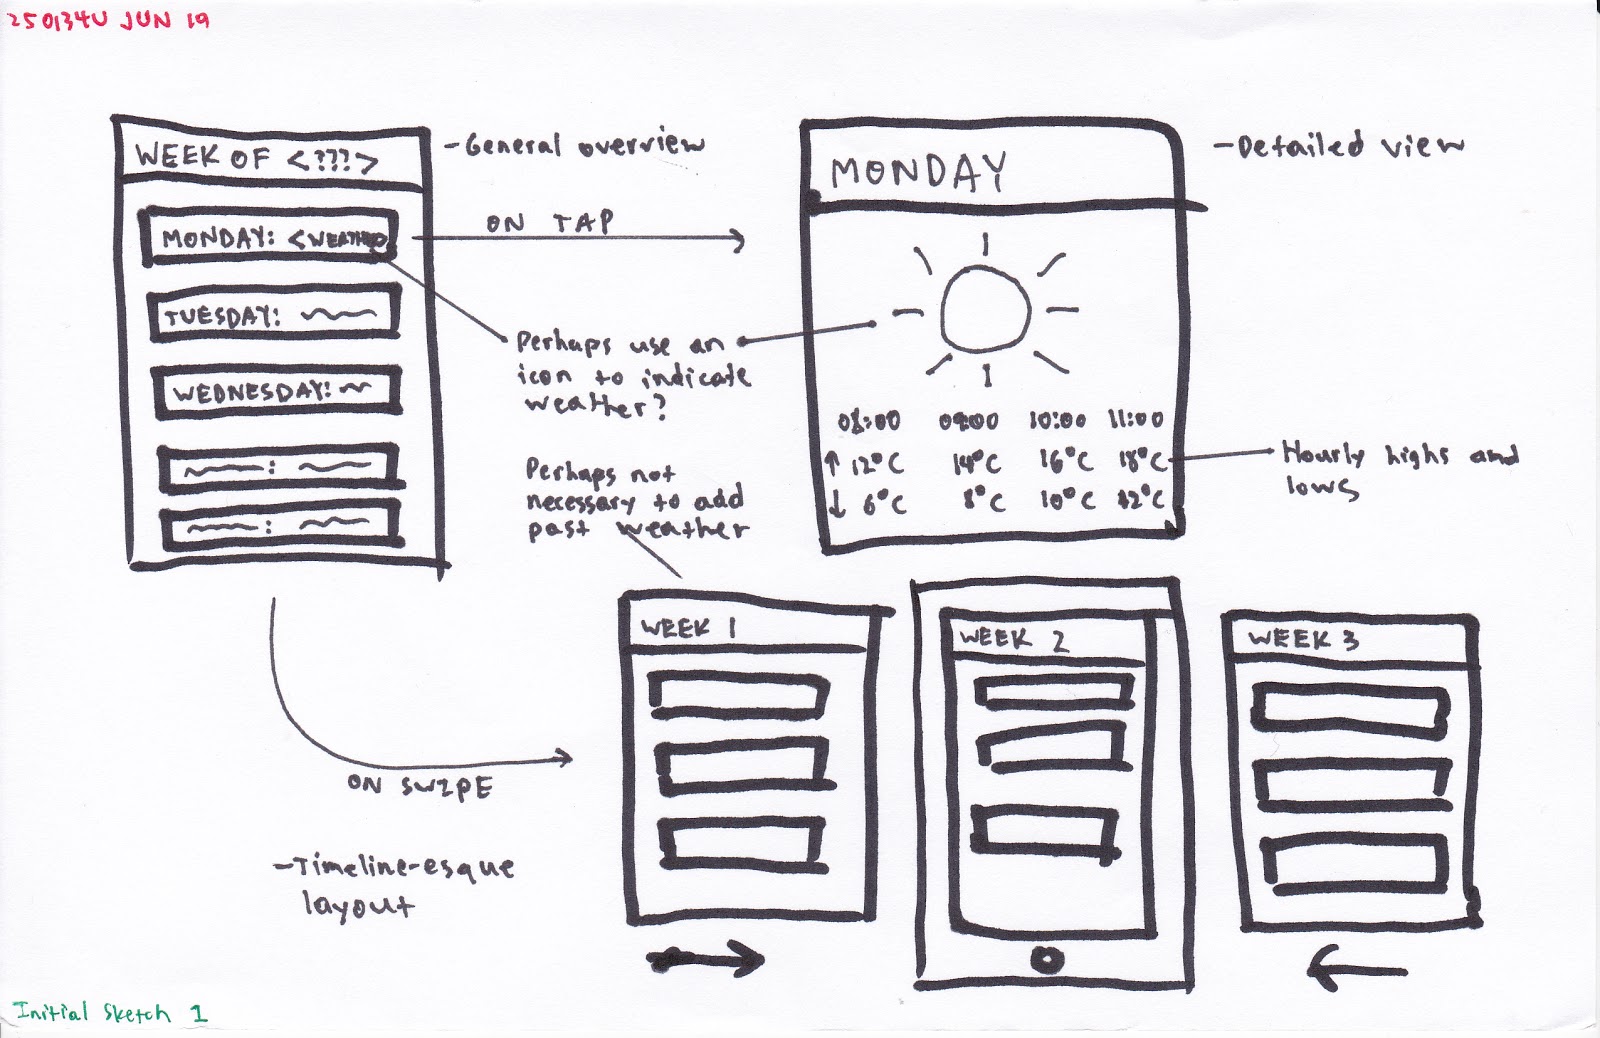 250134U JUN 19
WEEK OF <???>
MONDAY: <WEATHER
TUESDAY:
WEDNESDAY:
-General overview
ON TAP
Perhaps use an
icon to indicate
weather?
MONDAY
08:00 09:00 10:00 11:00
↑ 12°C 14°C 16°C 18°C
↓ 6°C 8°C 10°C 12°C
-Detailed view
Hourly highs and
lows
Perhaps not
necessary to add
past weather
ON SWIPE
-Timeline-esque
layout
WEEK 1
WEEK 2
WEEK 3
Initial Sketch 1